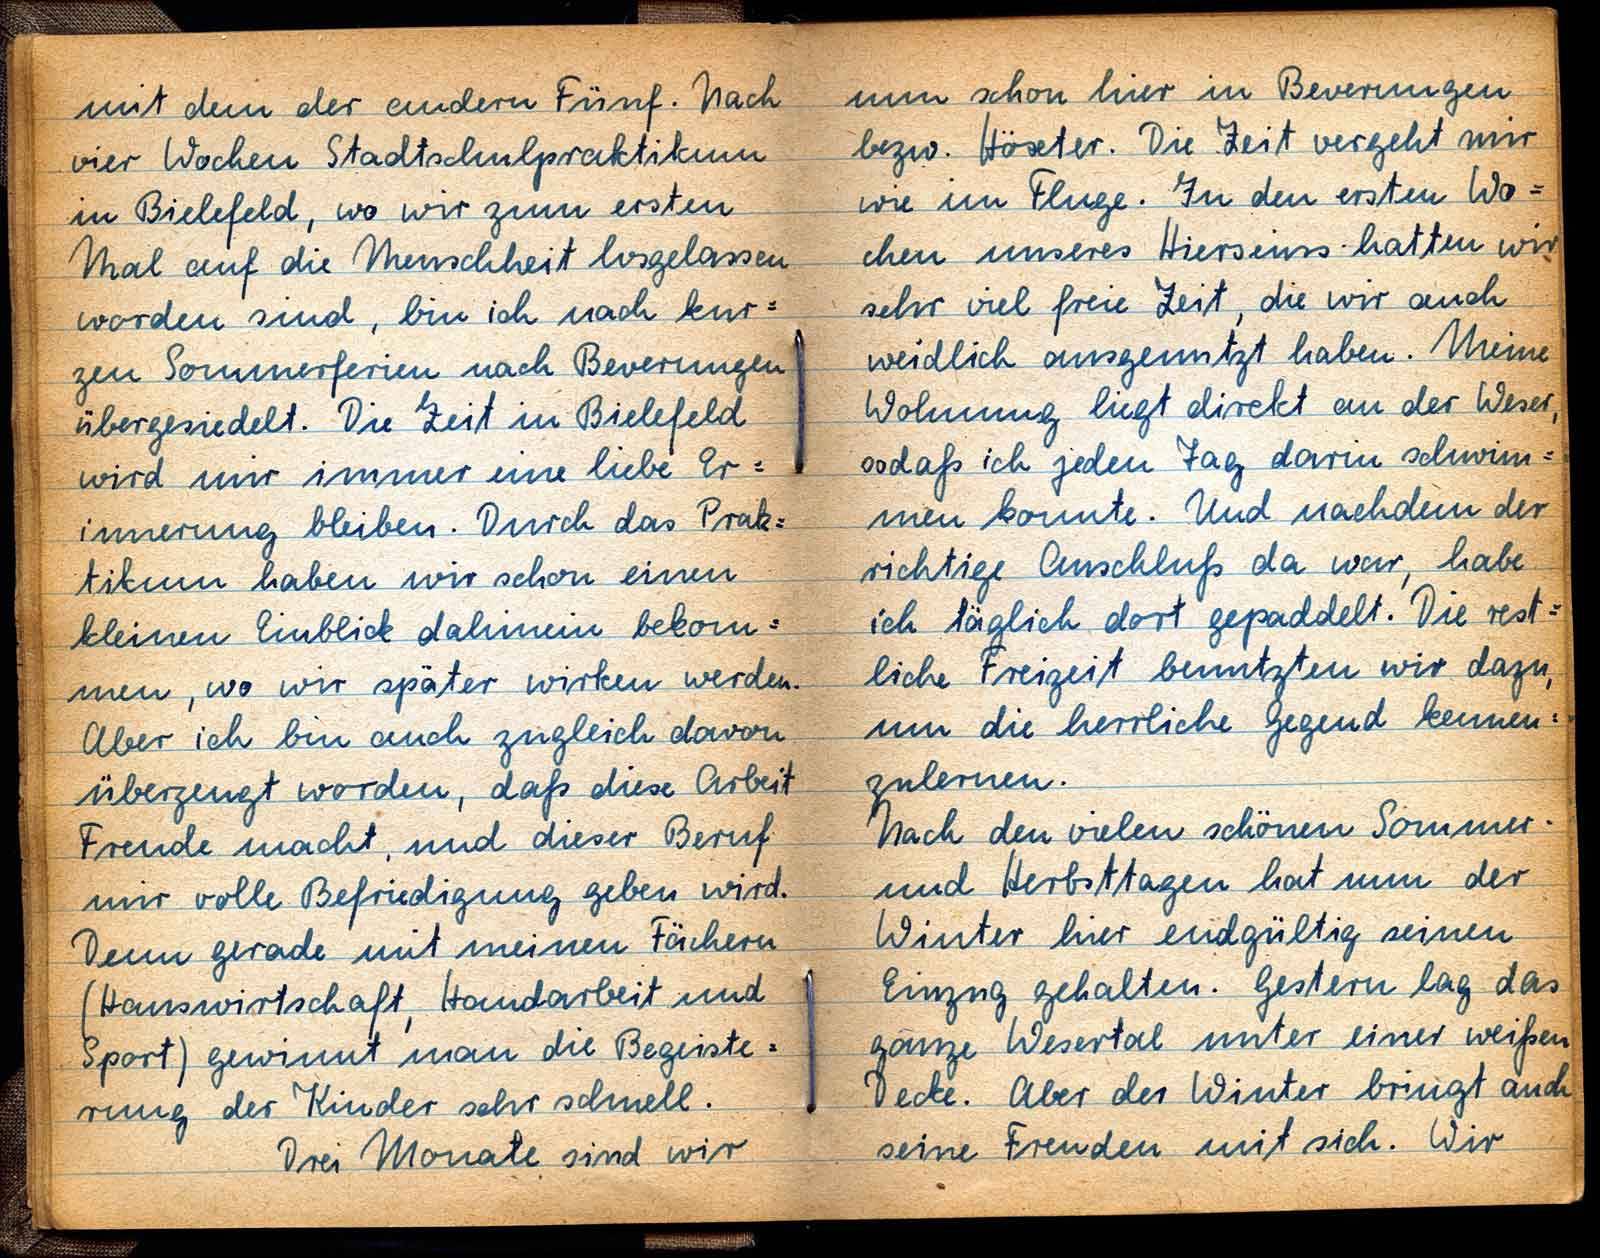 mit dem der andern Fünf. Nach
vier Wochen Stadtschulpraktikum
in Bielefeld, wo wir zum ersten
Mal auf die Menschheit losgelassen
worden sind, bin ich nach kur=
zen Sommerferien nach Beverungen
übergesiedelt. Die Zeit in Bielefeld
wird mir immer eine liebe Er=
innerung bleiben. Durch das Prak=
tikum haben wir schon einen
kleinen Einblick dahinein bekom=
men, wo wir später wirken werden.
Aber ich bin auch zugleich davon
überzeugt worden, daß diese Arbeit
Freude macht, und dieser Beruf
mir volle Befriedigung geben wird.
Denn gerade mit meinen Fächern
(Hauswirtschaft, Handarbeit und
Sport) gewinnt man die Begeiste=
rung der Kinder sehr schnell.
Drei Monate sind wir
nun schon hier in Beverungen
bezw. Höxter. Die Zeit vergeht mir
wie im Fluge. In den ersten Wo=
chen unseres Hierseins hatten wir
sehr viel freie Zeit, die wir auch
weidlich ausgenutzt haben. Meine
Wohnung liegt direkt an der Weser,
sodaß ich jeden Tag darin schwim=
men konnte. Und nachdem der
richtige Anschluß da war, habe
ich täglich dort gepaddelt. Die rest=
liche Freizeit benutzten wir dazu,
um die herrliche Gegend kennen=
zulernen.
Nach den vielen schönen Sommer-
und Herbsttagen hat nun der
Winter hier endgültig seinen
Einzug gehalten. Gestern lag das
ganze Wesertal unter einer weißen
Decke. Aber der Winter bringt auch
seine Freuden mit sich. Wir